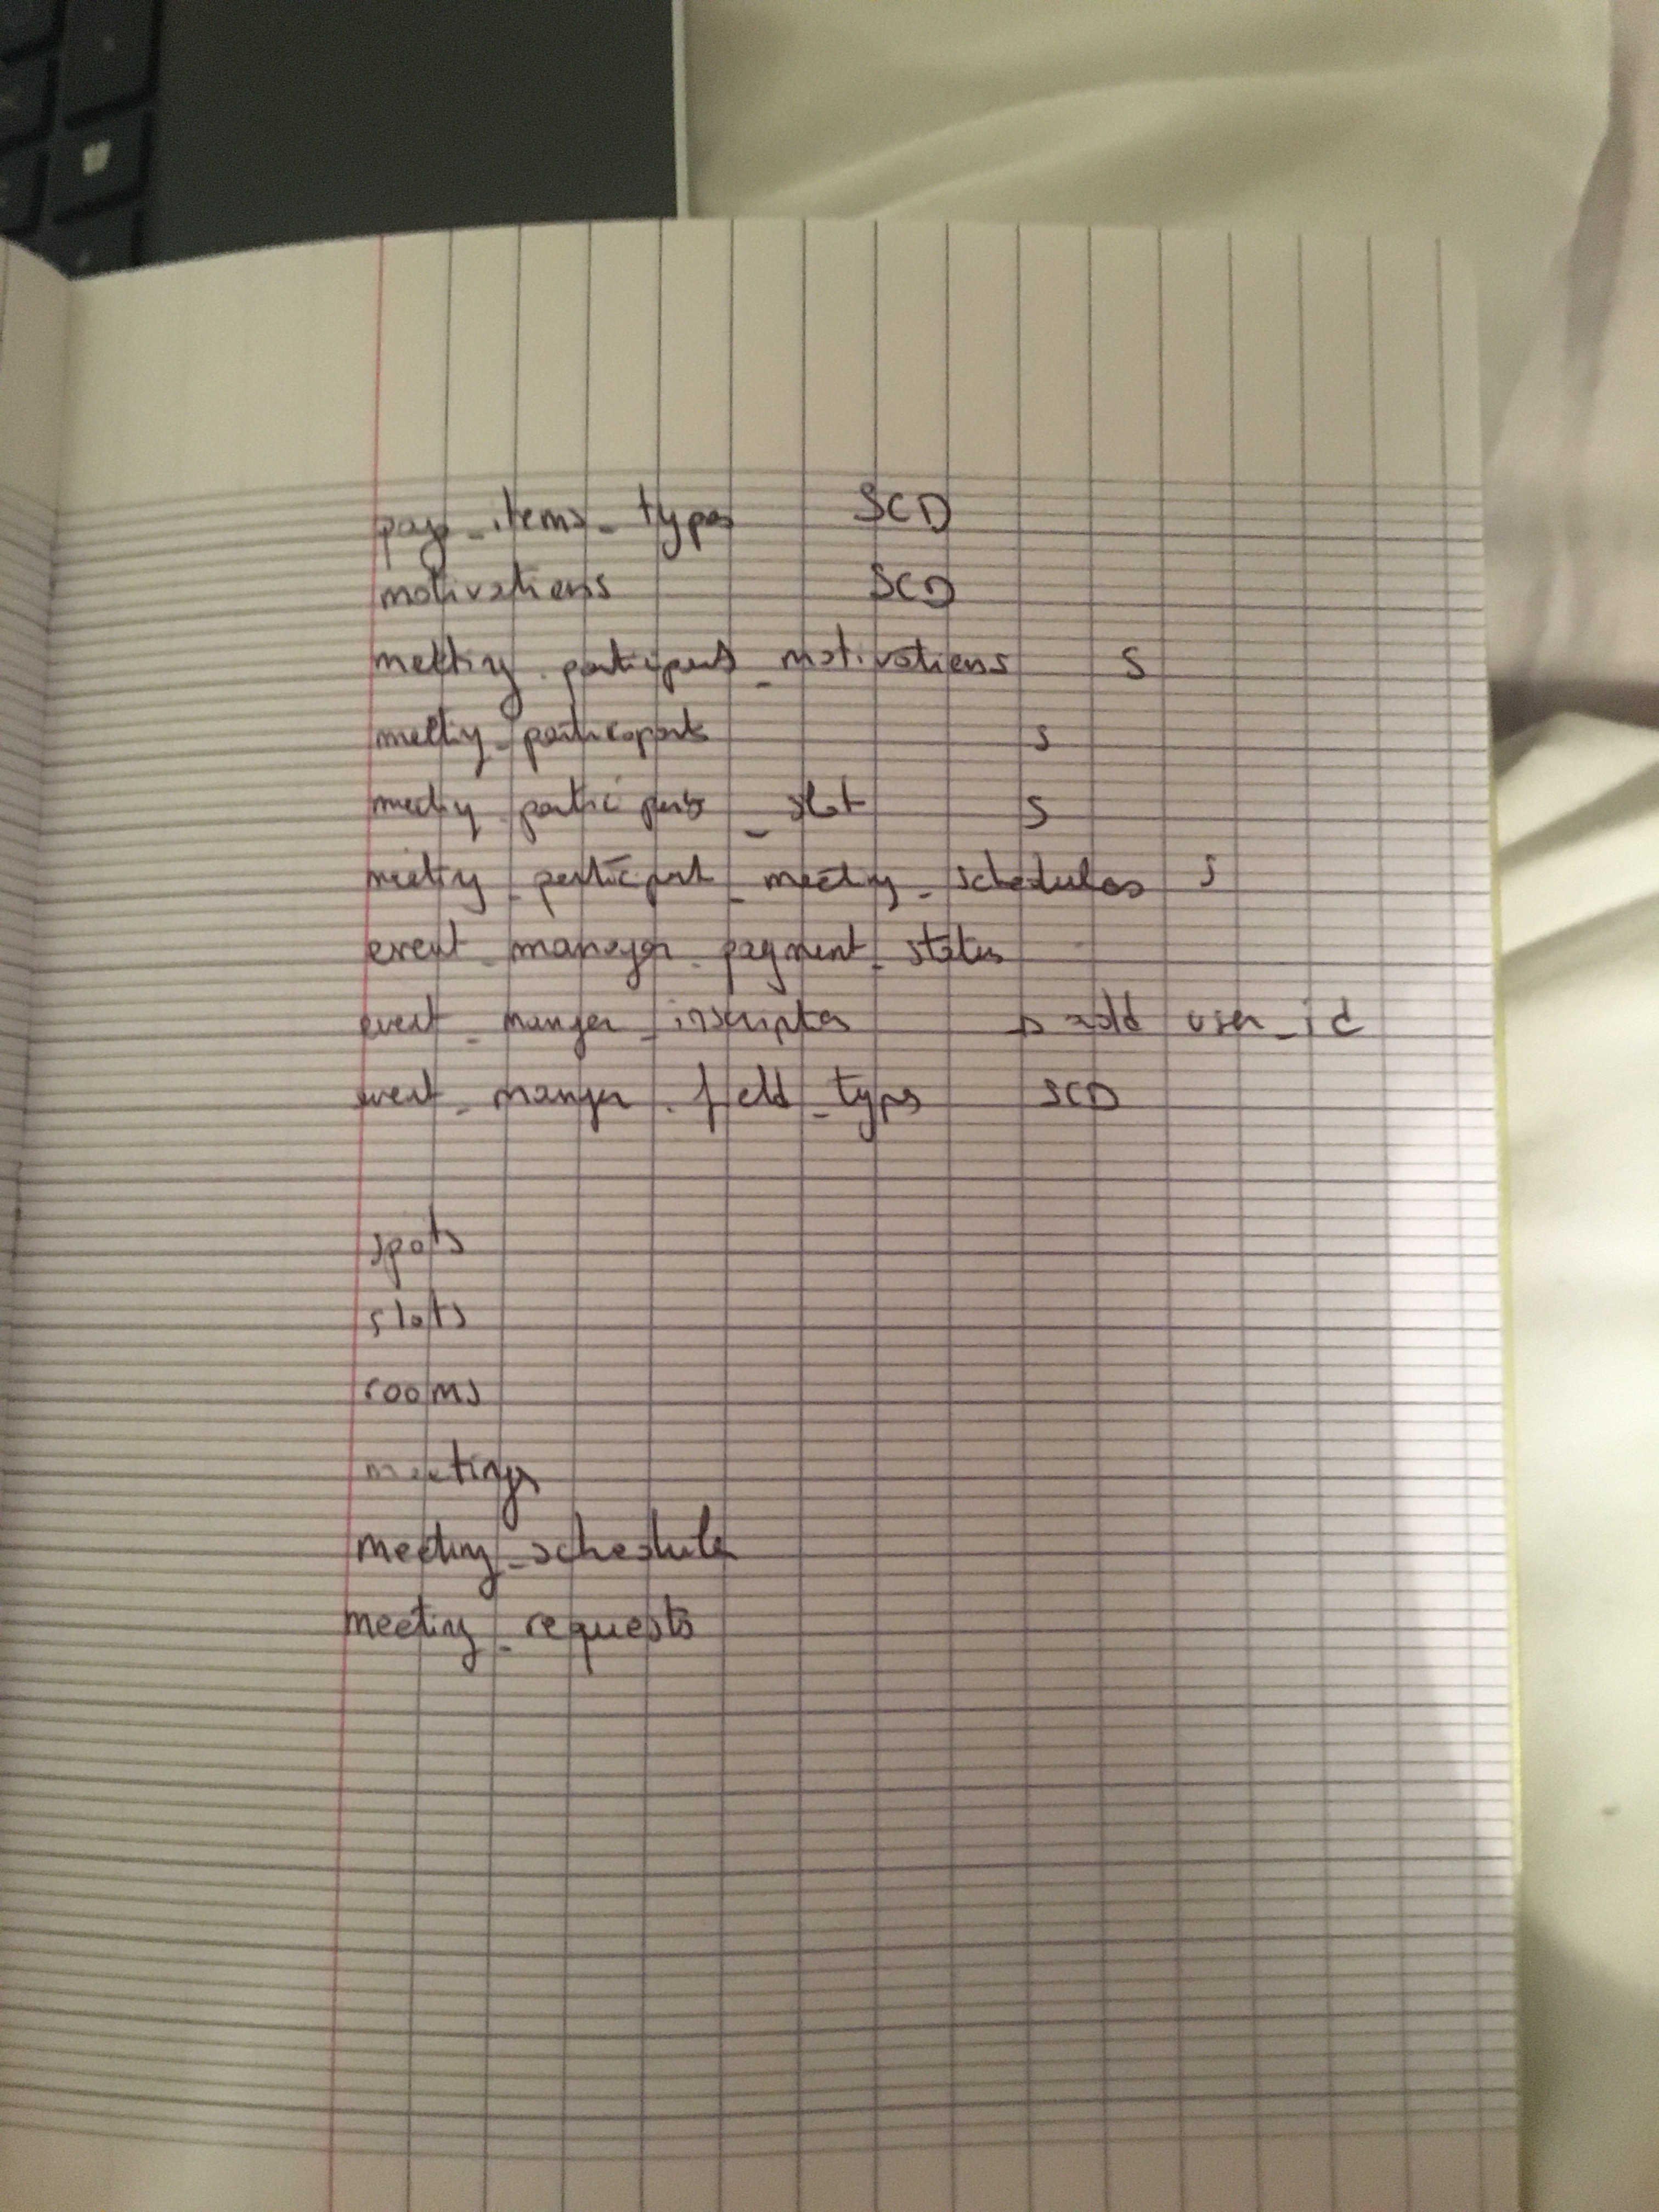 page_items_types SCD
motivations SCD
meeting_participants_motivations S
meeting_participants S
meeting_participants_slot S
meeting_participant_meeting_schedules S
event_manager_payment_status
event_manager_inscriptes → add user_id
event_manager_field_types SCD
spots
slots
rooms
meetings
meeting_schedule
meeting_requests